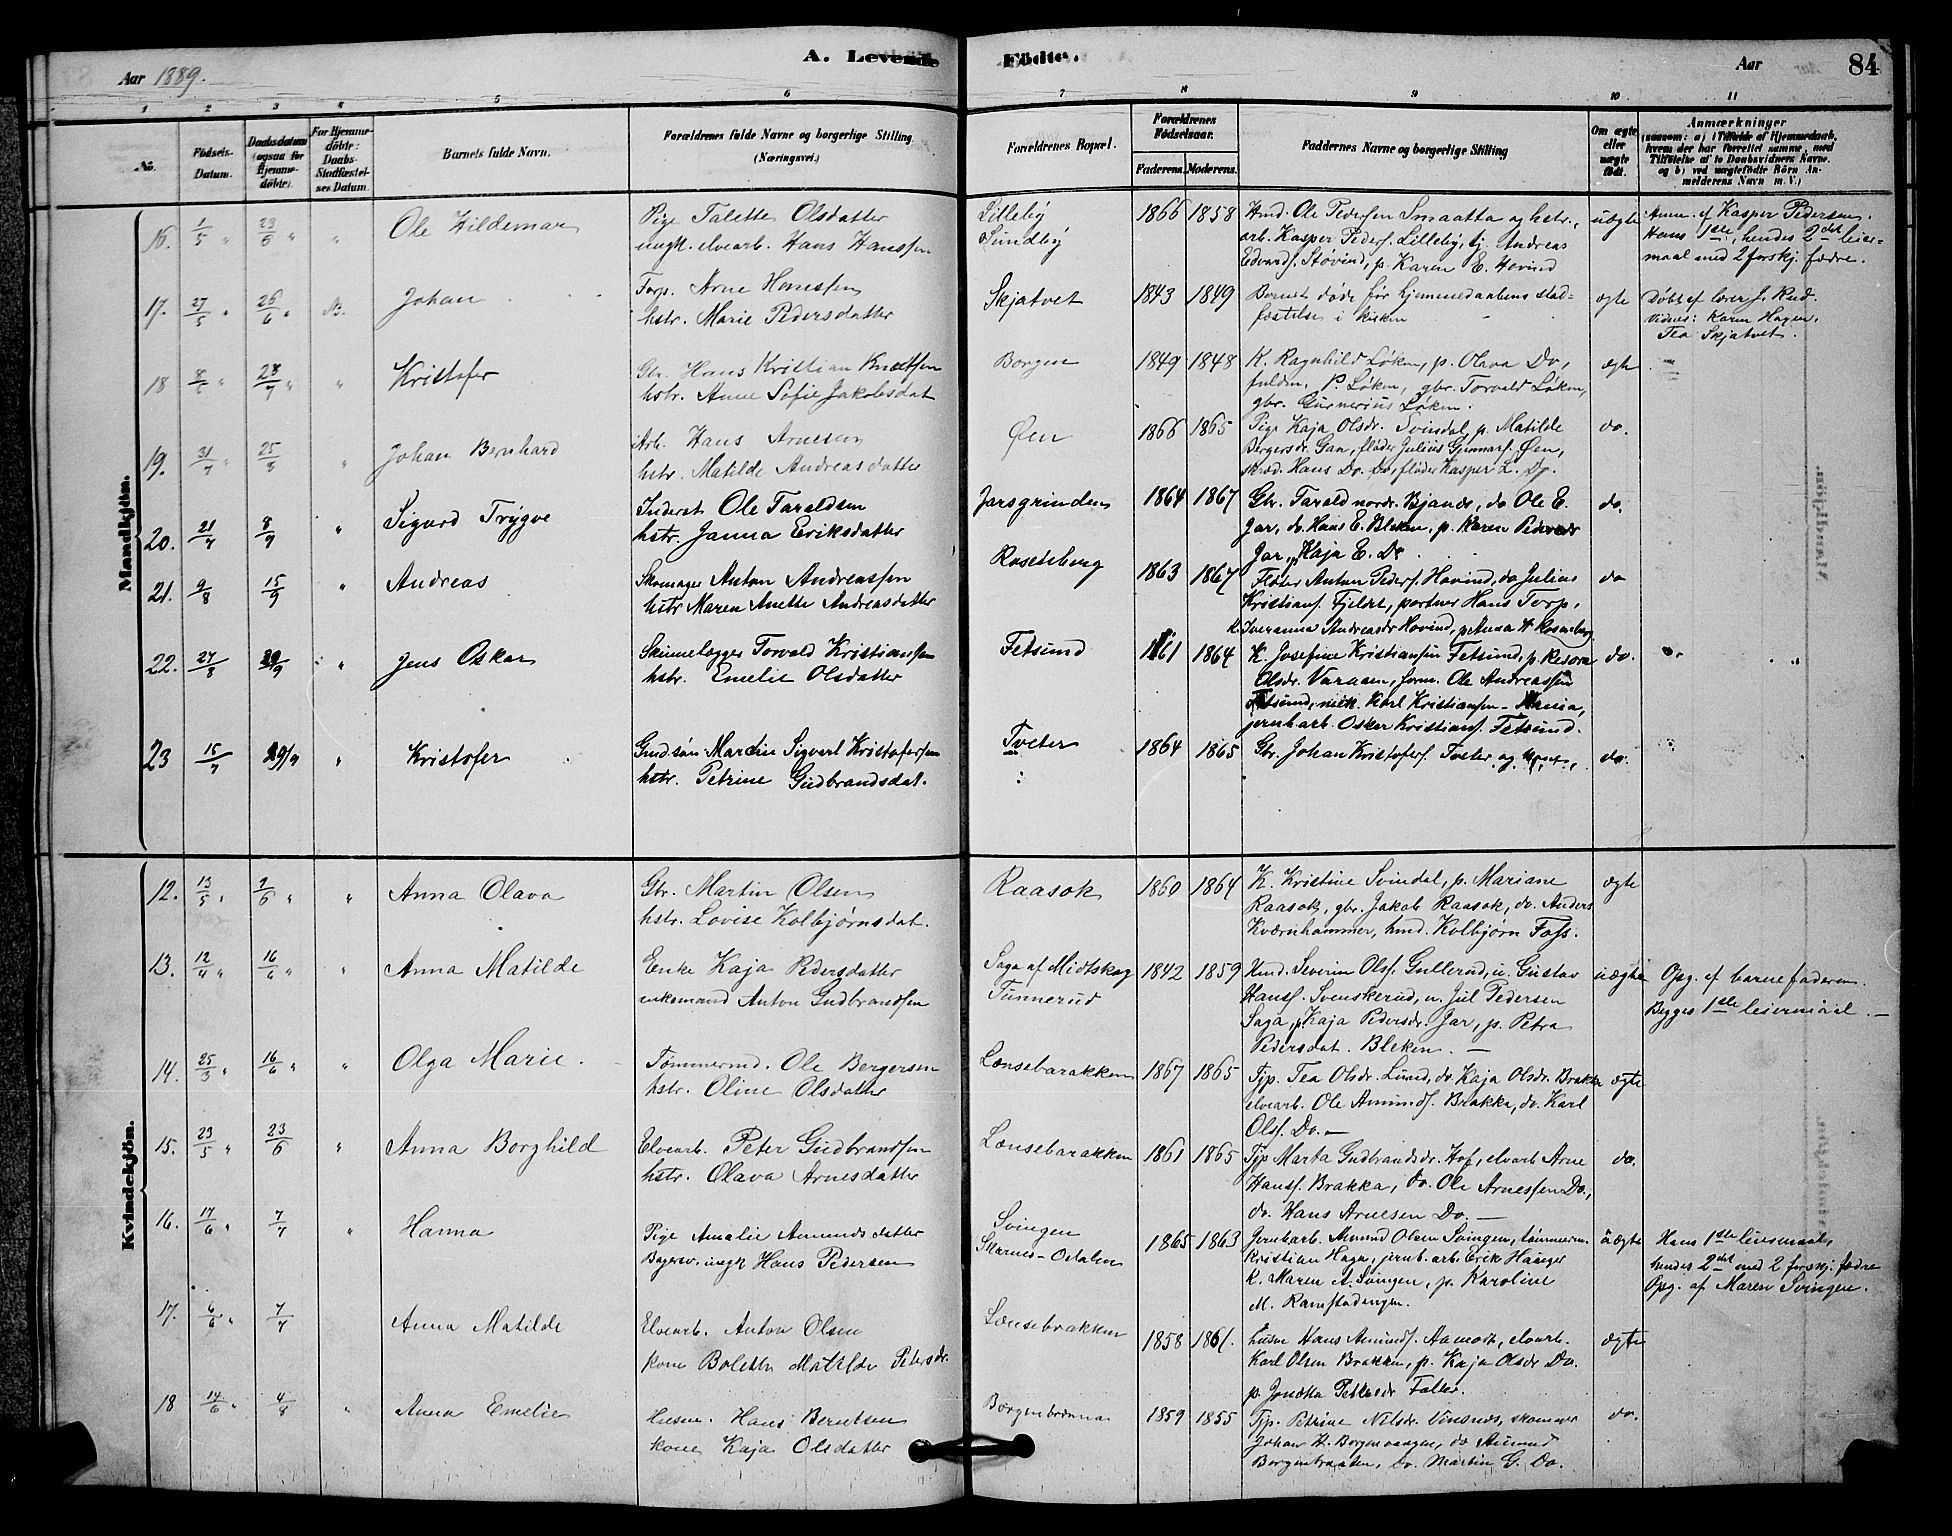 Aar 1889.
A. Levende
Fødte.
Aar
84
1 2 3 4 5 6 7 8 9 10 11
No.
Fødsels-Datum.
Daabsdatum (ogsaa for Hjemme-døbte).
For Hjemme-døbte: Daabs-Stadfæstel-ses Datum.
Barnets fulde Navn.
Forældrenes fulde Navne og borgerlige Stilling (Næringsvei.)
Forældrenes Bopæl.
Forældrenes Fødselsaar.
Faderens. Moderens.
Faddernes Navne og borgerlige Stilling
Om ægte eller uægte født.
Anmærkninger
(saasom: a) i Tilfælde af Hjemmedaab, hvem der har forrettet samme, med Tilføielse af to Daabsvidners Navne, og b) ved uægtefødte Børn An-melderens Navn m. V.)
Mandkjøn.
16. 1/5 " 23/6 " "
Ole Hildemar
Pige Talette Olsdatter
ungk. elvearb. Hans Hanssen
Lilleby
Sundby
1866 1858
Hmd. Ole Pedersen Smaatta og hstr.,
arb. Kasper Peders. Lilleby, tj. Andreas
Edvards. Støvind, p. Karen E. Hovind
uægte
Anm. af Kasper Pedersen.
Hans 1ste, hendes 2det leier=
maal med 2 forskj. fædre.
17. 27/5 " 26/6 "
Johan
Torp. Arne Hanessen
hstr. Marie Pedersdatter
Skjatvet
1843 1849
Barnet døde før hjemmedaabens stad=
fæstelse i kirken
ægte
Døbt af lærer J. Rud.
Vidner: Karen Hagen,
Tea Skjatvet.
18 " 28/7 " "
Kristofer
Gbr. Hans Kristian Knutsen
hstr. Anne Sofie Jakobsdat
Borgen
1849 1848
K. Ragnhild Løken, p. Olava Do,
P. Løken, gbr. Torvald Løken,
gbr. Gunerius Løken.
ægte
19. 31/7 " 25/8 "
Johan Bernhard
Arb. Hans Arnesen
hstr. Matilde Andreasdatter
Øen
1866 1865
Pige Kaja Olsdr. Svindal, p. Matilde
Bergersdr. Gan, fløder Julius Gunnars. Øen,
skræd. Hans Do. Do, fløder Kasper L. Do.
do.
20. 21/7 8/9 "
Sigurd Trygve
Inderst Ole Taraldsen
hstr. Janna Eriksdatter
Jarsgrinden
1864 1867
Gbr. Tarald nordr. Bjanes, do Ole E.
Jar, do. Hans E. Bleken, p. Karen Pedersdr
Jar, p. Kaja E. Do.
do.
21. 9/8 15/9 "
Andreas
Skomager Anton Andreassen
hstr Maren Anette Andreasdatter
Rosenberg
1863 1867
Fløter Anton Peders. Hovind, do Julius
Kristians. Fjeldt, partner Hans Torp,
k. Iveranna Andreasdr Hovind, p. Anna H. Rosenberg
do
22. 27/8 29/9 "
Jens Oskar
Skinnelægger Torvald Kristiansen
hstr. Emelie Olsdatter
Fetsund
1861 1864
K. Josefine Kristiansen Fetsund, p.
Olsdr. Varaaen, form. Ole Andreassen
Fetsund, Karl Kristiansen
jernbarb. Oskar Kristians. Fetsund.
do.
23 15/7 29/9 "
Kristofer
Gaardsøn Martin Sigvert Kristofersen
hstr. Petrine Gudbrandsdat.
Tveter
1864 1865
Gbr. Johan Kristofers. Tveter og
do.
Kvindekjøn.
12. 13/5 " 9/6 " "
Anna Olava
Gbr. Martin Olsen
hstr. Lovise Kolbjørnsdat.
Raasok
1860 1864
K. Kristine Svindal, p. Mariane
Raasok, gbr. Jakob Raasok, do. Anders
Kværnhammer, hmd. Kolbjørn Foss.
ægte
13. 12/4 " 16/6 " "
Anna Matilde
Enke Kaja Pedersdatter
enkemand Anton Gudbrandsen
Saga af Midtskog
Tunnerud
1842 1859
Hmd. Severin Ols. Gullerud, u. Gustav
Hans. Svenskerud, u. Jul Pedersen
Saga, p. Kaja Pedersdr. Jar, p. Petra
Pedersdat. Bleken. —
uægte
Opg. af barnefaderen.
Begges 1ste leiermaal. —
14. 25/3 " 16/6 " "
Olga Marie.
Tømmermd. Ole Bergersen
hstr. Oline Olsdatter
Lænsebarakken
1867 1865
Tjp. Tea Olsdr. Lund, do. Kaja Olsdr. Brakka
elvearb. Ole Amunds. Brakka, do. Karl
Ols. Do. —
ægte
15. 23/5 " 23/6 "
Anna Borghild
Elvearb. Peter Gudbrandsen
hstr. Olava Arnesdatter
Lænsebarakken
1861 1865
Tjp Marta Gudbrandsdr. Hof, elvarb Arne
Hans. Brakka, do. Ole Arnessen Do.,
do. Hans Arnesen Do. —
do.
16. 17/6 " 7/7 "
Hanna
Pige Amalie Amundsdatter
Bagersv. ungk Hans Pedersen
Svingen
Skarnes-Odalen
1865 1863
Jernbarb. Amund Olsen Svingen, tømmerm.
Kristian Haga, jernb.arb. Erik Hauger
k. Maren A. Svingen, p. Karoline
M. Ramstadengen.
uægte
Hans 1ste leiermaal,
hendes 2det med 2 forskj. fædre
Opg. af Maren Svingen.
17. 6/6 " 7/7
Anna Matilde
Elvearb. Anton Olsen
kone Bolette Matilde Petersdr.
Lænsebrakken
1858 1861.
Hans Amunds. Aamodt, elvarb.
Karl Olsen Brakken, p. Kaja Olsdr Do.
p. Jonetta Pettersdr
ægte
18 14/6 " 4/8 "
Anna Emelie
Husm. Hans Berntsen
kone Kaja Olsdatter
Borgenbrænna
1859 1855
Tjp. Petrine Nilsdr. Vinsnes, skomager
Johan H. Borgenvangen, do Amund
Borgenbraaten, do. Martin G. Do.
do.